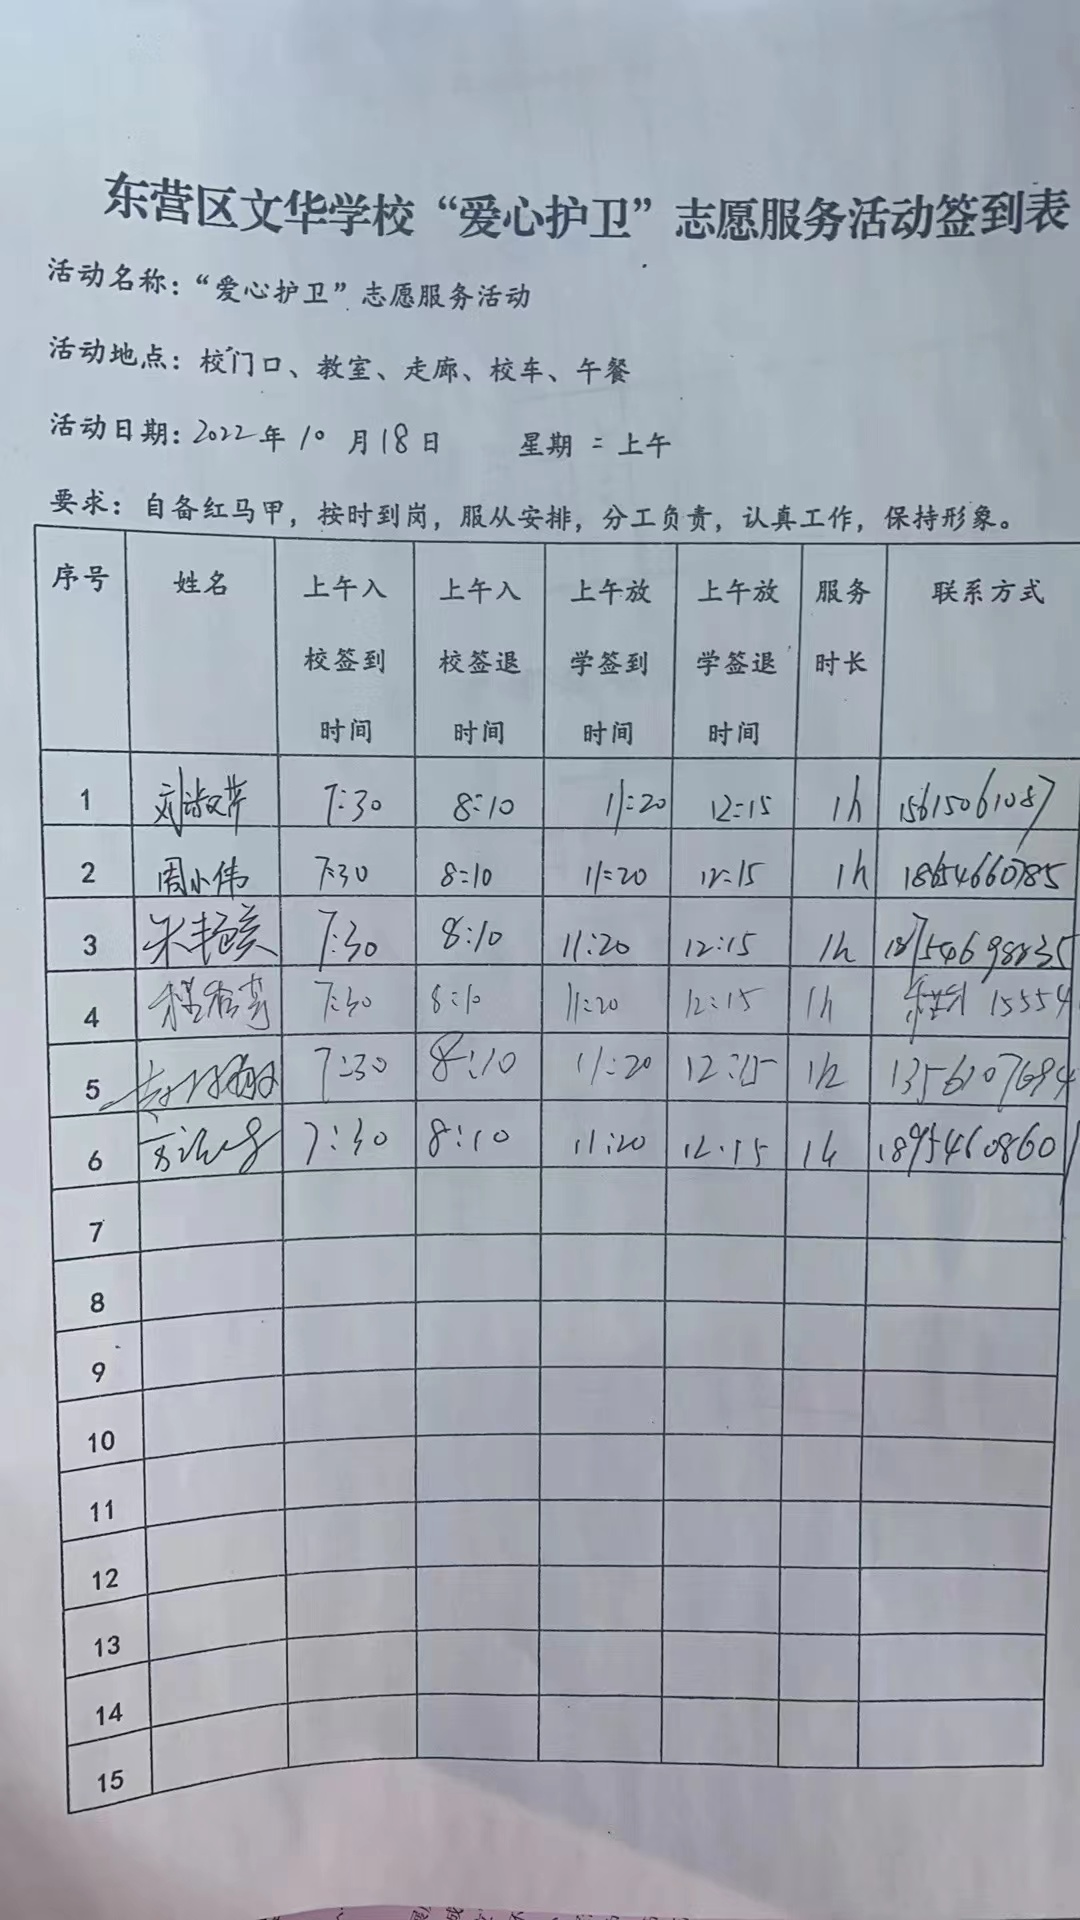 东营区文华学校“爱心护卫”志愿服务活动签到表
活动名称：“爱心护卫”志愿服务活动
活动地点：校门口、教室、走廊、校车、午餐
活动日期：2022年10月18日 星期二上午
要求：自备红马甲，按时到岗，服从安排，分工负责，认真工作，保持形象。
序号 姓名 上午入校签到时间 上午入校签退时间 上午放学签到时间 上午放学签退时间 服务时长 联系方式
1 刘淑芹 7:30 8:10 11:20 12:15 1h 15615061087
2 周小伟 7:30 8:10 11:20 12:15 1h 18654660785
3 7:30 8:10 11:20 12:15 1h
4 7:30 8:10 11:20 12:15 1h 15554
5 7:30 8:10 11:20 12:15 1h 1356107694
6 7:30 8:10 11:20 12:15 1h 18954608601
7
8
9
10
11
12
13
14
15